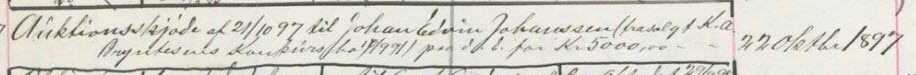 Auktionsskjøde af 21/10 97 til Johan Edvin Johanssen (frasolgt K. A.
Bryntesens konkursbo) paa d. b. for Kr 5000,00 - -
22 Oktbr 1897